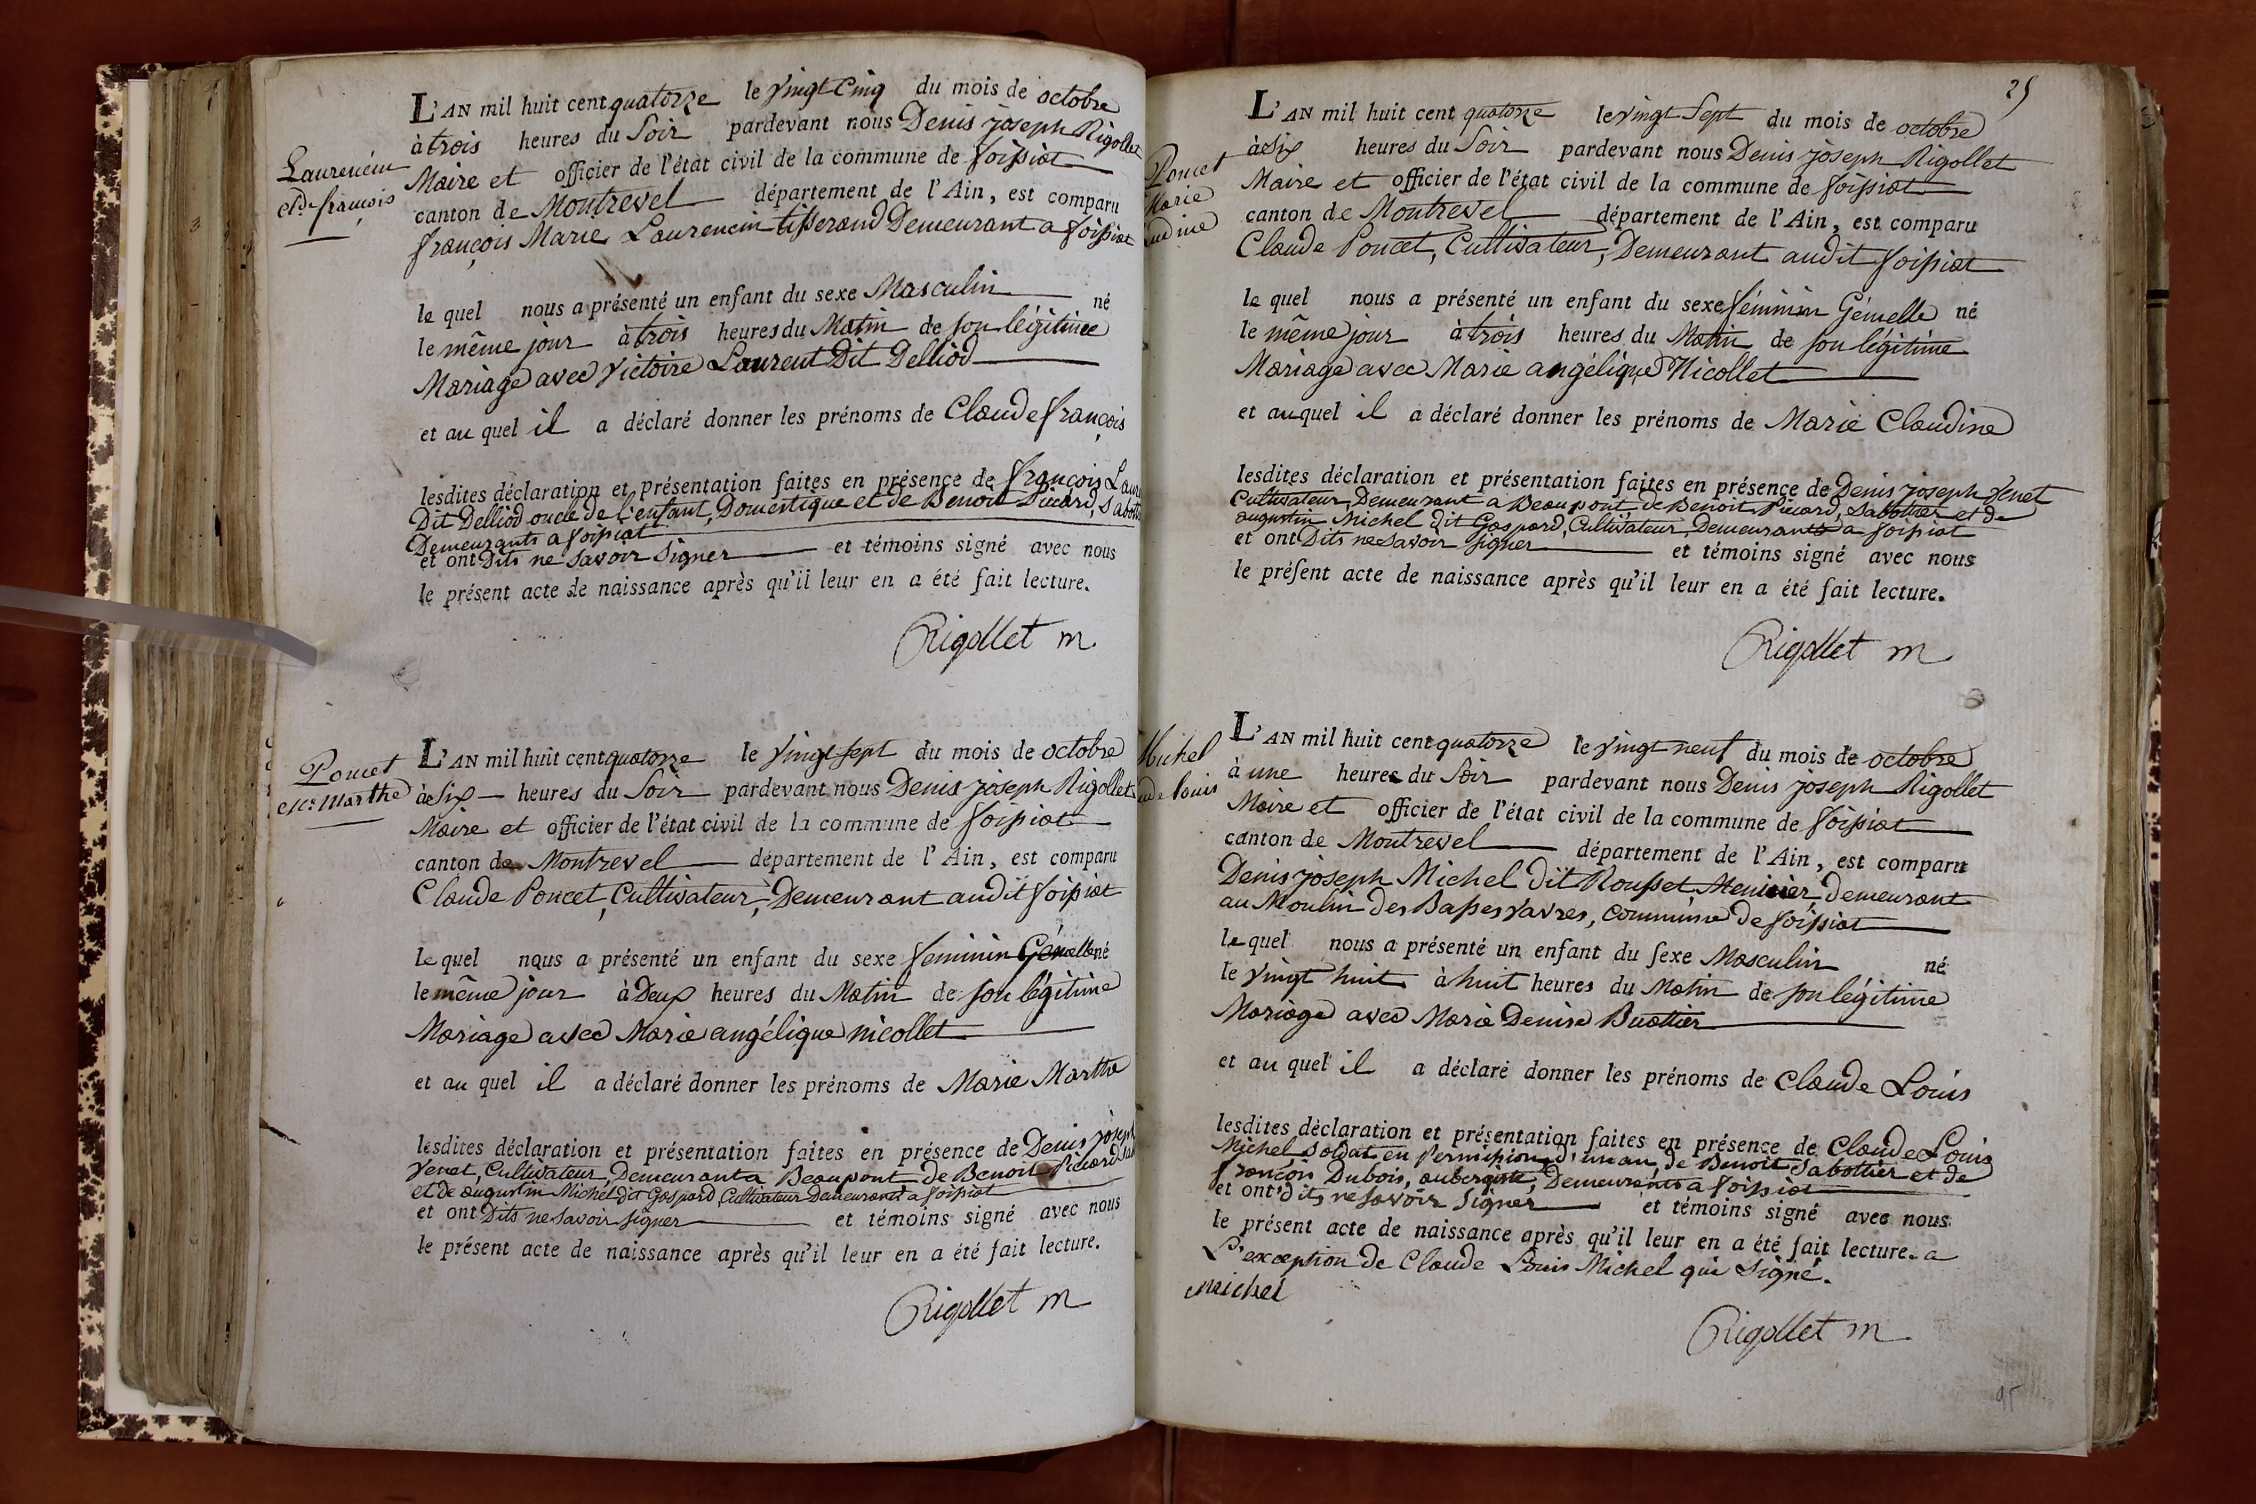 Laurencin
Cl.de françois
L'AN mil huit cent quatorze le vingt Cinq du mois de octobre
à trois heures du Soir pardevant nous Denis joseph Rigollet
Maire et officier de l'état civil de la commune de foissiat
canton de Montrevel département de l'Ain, est comparu
françois Marie Laurencin tisserand Demeurant a foissiat
le quel nous a présenté un enfant du sexe Masculin né
le même jour à trois heures du Matin de son légitime
Mariage avec victoire Laurent Dit Delliod
et au quel il a déclaré donner les prénoms de Claude françois
lesdites déclaration et présentation faites en présence de françois Laur
Dit Delliod oncle de l'enfant, Domestique et de Benoit Picard, Sabott
Demeurants a foissiat
et ont Dits ne savoir signer et témoins signé avec nous
le présent acte de naissance après qu'il leur en a été fait lecture.
Rigollet m
Poncet
M.e Marthe
L'AN mil huit cent quatorze le vingt sept du mois de octobre
à Six heures du Soir pardevant nous Denis joseph Rigollet
Maire et officier de l'état civil de la commune de foissiat
canton de Montrevel département de l'Ain, est comparu
Claude Poncet, Cultivateur, Demeurant audit foissiat
le quel nous a présenté un enfant du sexe feminin Gémelle né
le même jour à Deux heures du Matin de son légitime
Mariage avec Marie angélique nicollet
et au quel il a déclaré donner les prénoms de Marie Marthe
lesdites déclaration et présentation faites en présence de Denis joseph
venet, Cultivateur, Demeurant a Beaupont de Benoit Picard Sab
et de augustin Michel dit Gaspard, Cultivateur Demeurants a foissiat
et ont Dits ne savoir signer et témoins signé avec nous
le présent acte de naissance après qu'il leur en a été fait lecture.
Rigollet m
25
Poncet
Marie
udine
L'AN mil huit cent quatorze le vingt Sept du mois de octobre
à Six heures du Soir pardevant nous Denis joseph Rigollet
Maire et officier de l'état civil de la commune de foissiat
canton de Montrevel département de l'Ain, est comparu
Claude Poncet, Cultivateur, Demeurant audit foissiat
le quel nous a présenté un enfant du sexe féminin Gémelle né
le même jour à trois heures du Matin de son légitime
Mariage avec Marie angélique Nicollet
et au quel il a déclaré donner les prénoms de Marie Claudine
lesdites déclaration et présentation faites en présence de Denis joseph venet
Cultivateur, Demeurant a Beaupont, de Benoit Picard, Sabottier et de
augustin Michel dit Gaspard, Cultivateur, Demeurants a foissiat
et ont Dits ne savoir signer et témoins signé avec nous
le présent acte de naissance après qu'il leur en a été fait lecture.
Rigollet m
Michel
ude louis
L'AN mil huit cent quatorze le vingt neuf du mois de octobre
à une heures du Soir pardevant nous Denis joseph Rigollet
Maire et officier de l'état civil de la commune de foissiat
canton de Montrevel département de l'Ain, est comparu
Denis joseph Michel dit Rousset Meunier, demeurant
au Moulin des Basses vavres, commune de foissiat
le quel nous a présenté un enfant du sexe Masculin né
le vingt huit à huit heures du Matin de son légitime
Mariage avec Marie Denise Buattier
et au quel il a déclaré donner les prénoms de Claude Louis
lesdites déclaration et présentation faites en présence de Claude Louis
Michel soldat en permission d'un an, de Benoit Sabottier et de
françois Dubois, aubergiste, Demeurants a foissiat
et ont dits ne savoir signer et témoins signé avec nous
le présent acte de naissance après qu'il leur en a été fait lecture. a
L'exception de Claude Louis Michel qui signé.
Maichel
Rigollet m
95